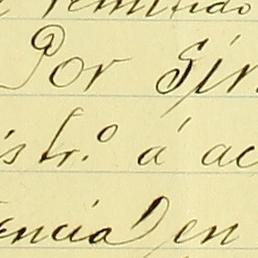 remitido
Por Sír
istr.º á ac
encia en